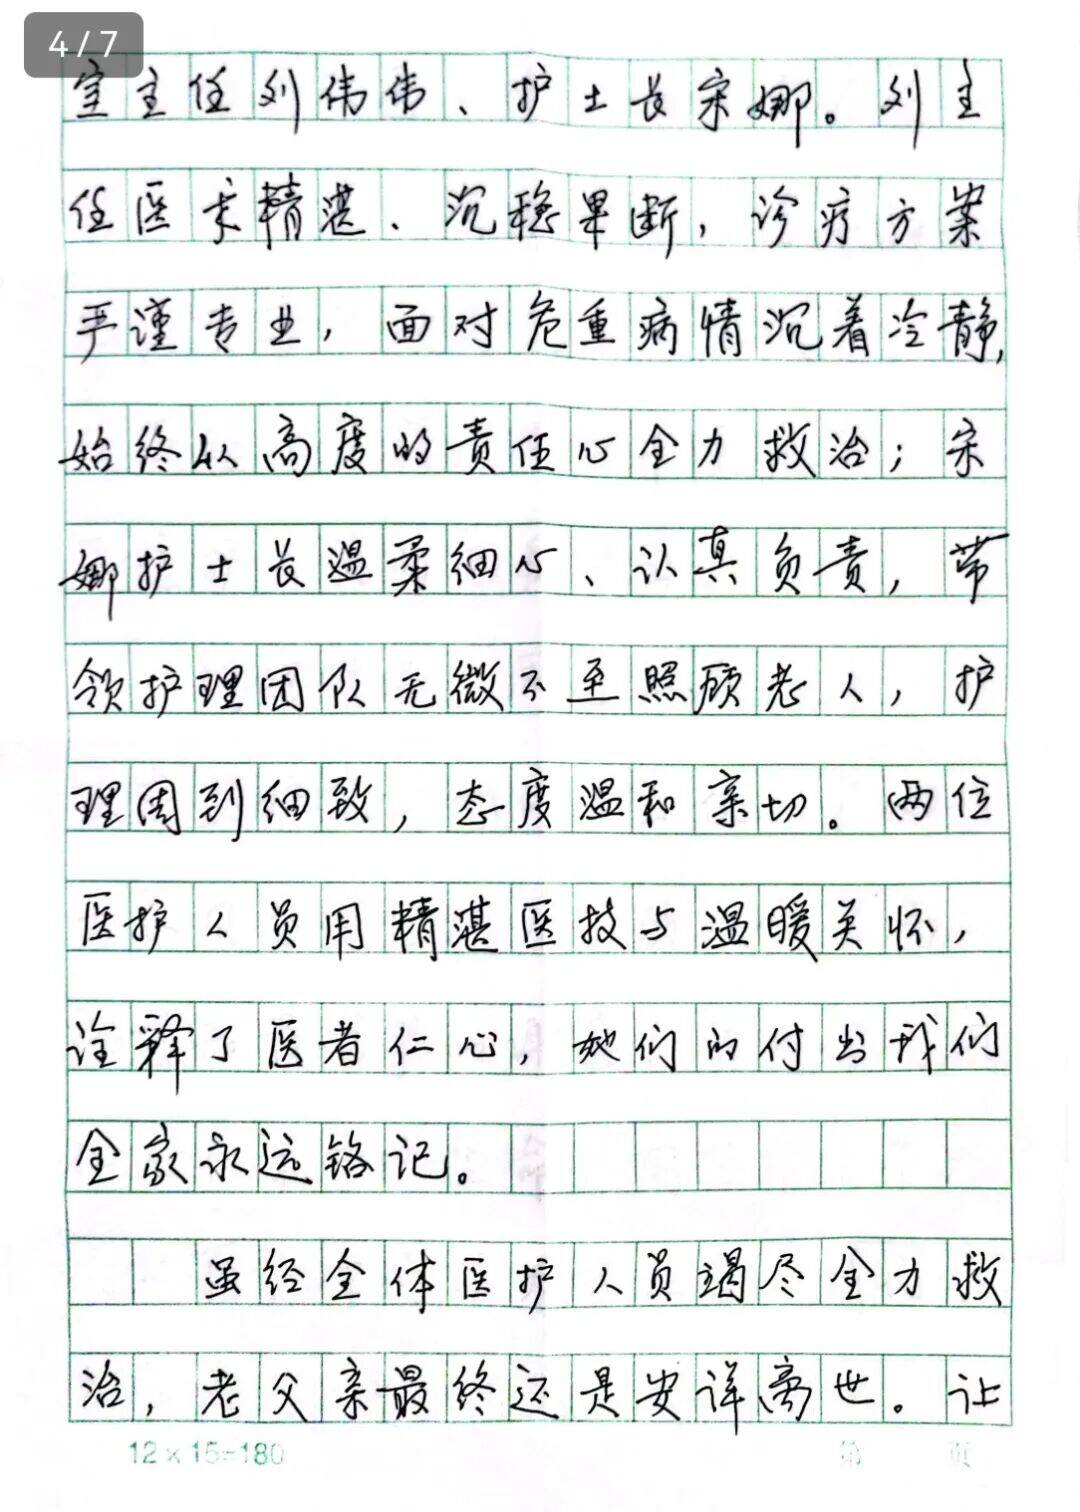 4/7
室主任刘伟伟、护士长宋娜。刘主
任医术精湛、沉稳果断，诊疗方案
严谨专业，面对危重病情沉着冷静，
始终以高度的责任心全力救治；宋
娜护士长温柔细心、认真负责，带
领护理团队无微不至照顾老人，护
理周到细致，态度温和亲切。两位
医护人员用精湛医技与温暖关怀，
诠释了医者仁心，她们的付出我们
全家永远铭记。
虽经全体医护人员竭尽全力救
治，老父亲最终还是安详离世。让
12×15=180
第 页